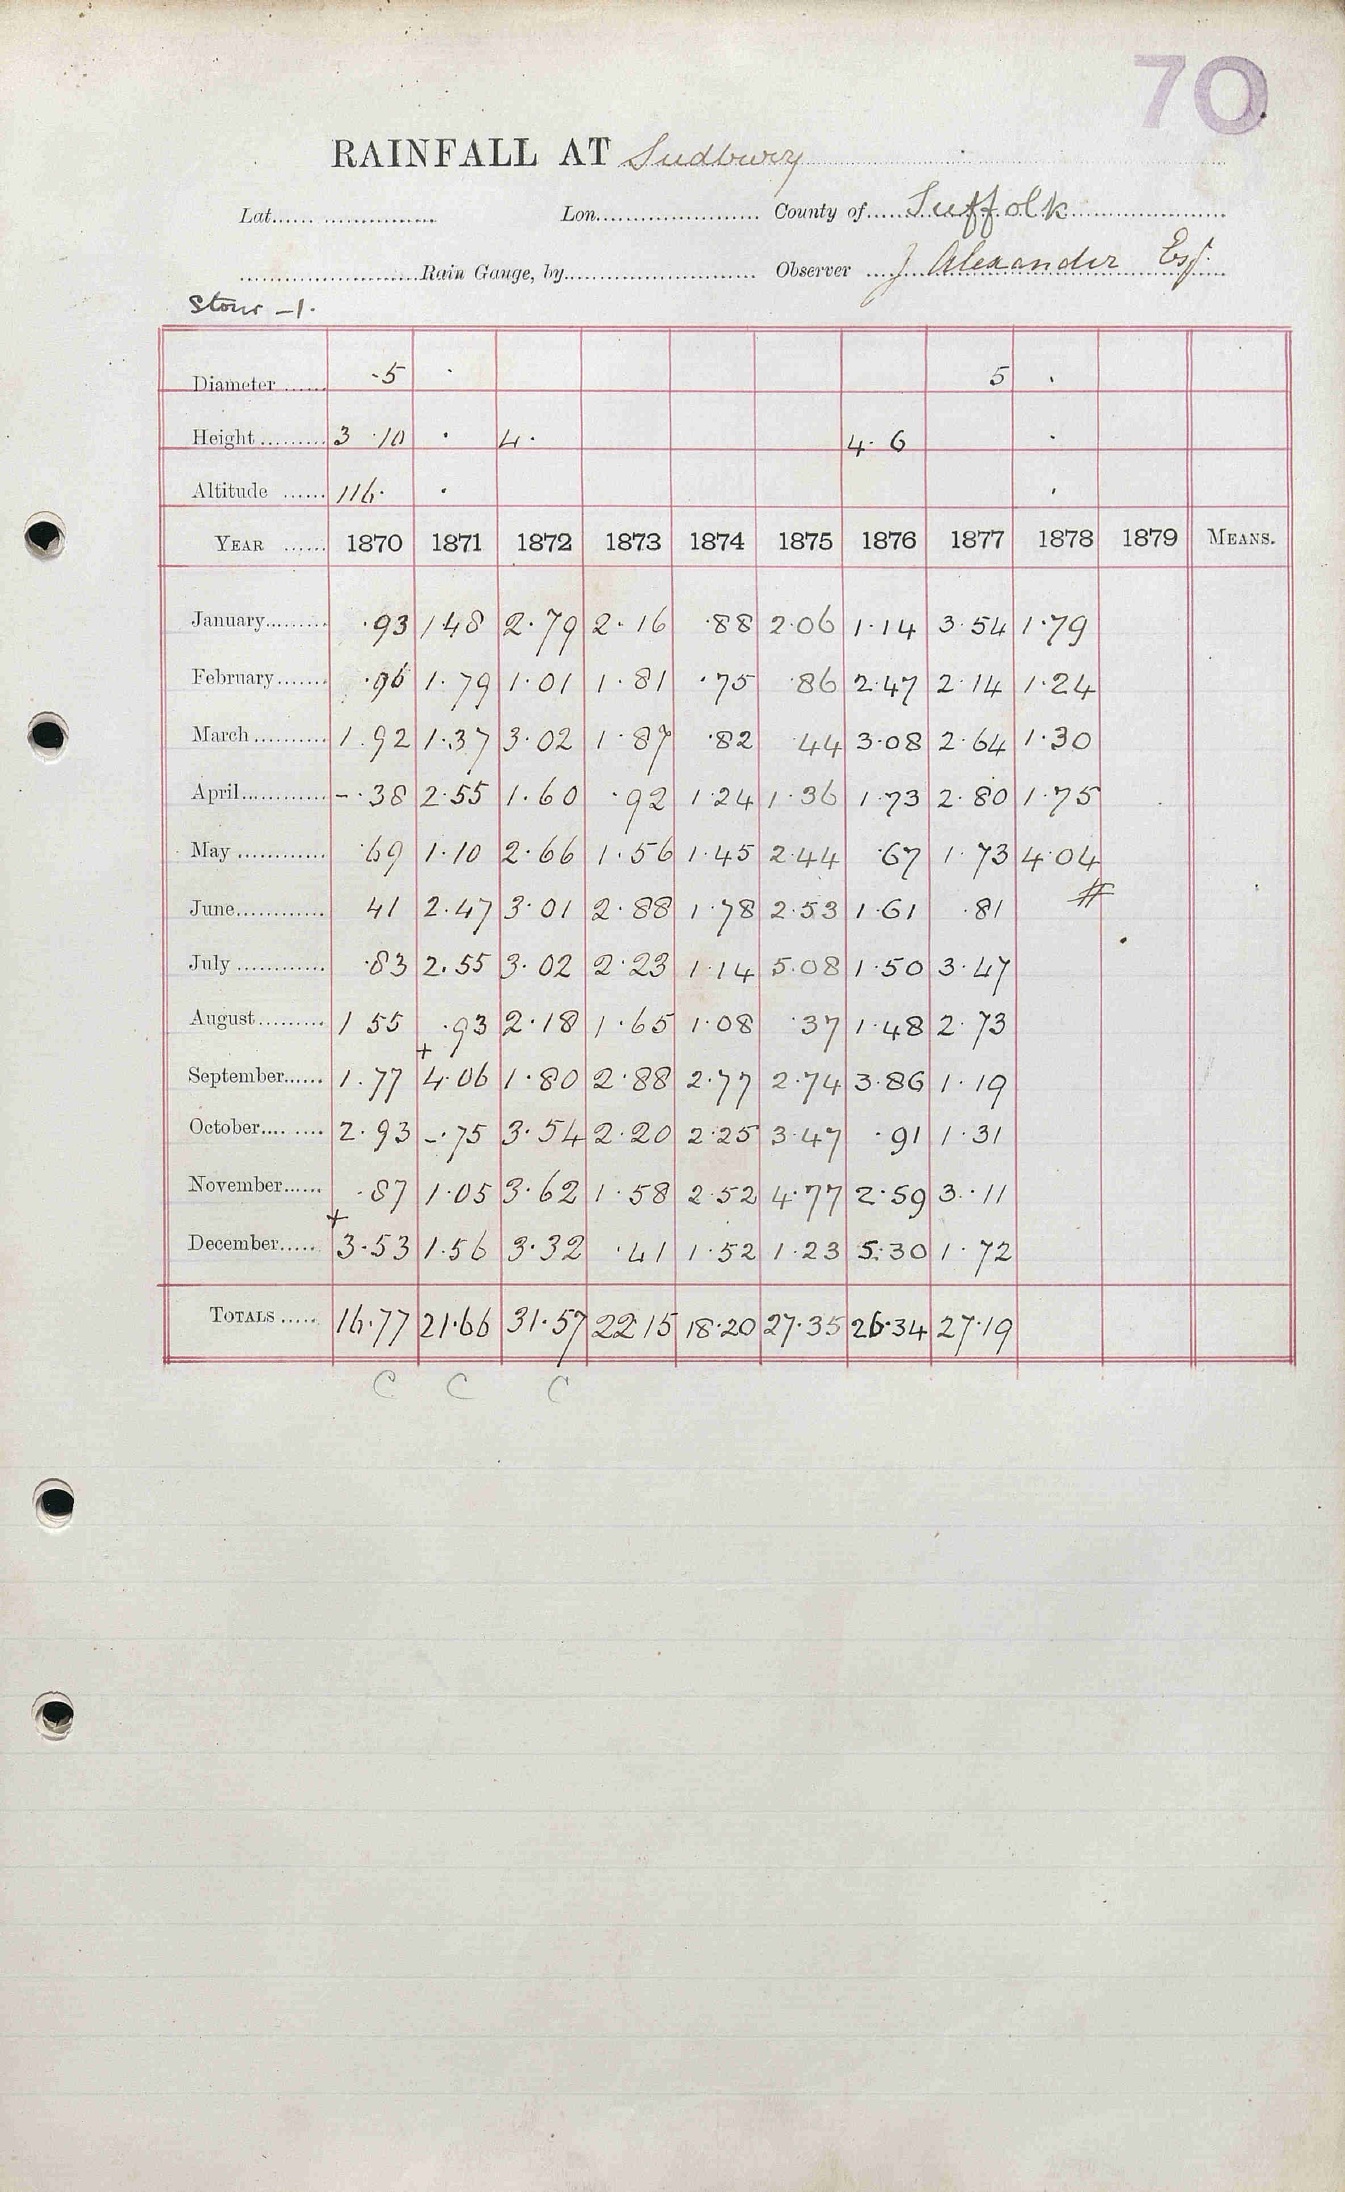 70
RAINFALL AT Sudbury
Lat. Lon. County of Suffolk
Rain Gauge, by Observer J Alexander Esq.
Stour -1.
Diameter ·5 · 5 ·
Height 3 ·10 · 4· 4·6 ·
Altitude 116· · ·
YEAR 1870 1871 1872 1873 1874 1875 1876 1877 1878 1879 MEANS.
January ·93 1 48 2·79 2·16 ·88 2·06 1·14 3·54 1·79
February ·96 1·79 1·01 1·81 ·75 ·86 2·47 2·14 1·24
March 1.92 1·37 3·02 1·87 ·82 ·44 3·08 2·64 1·30
April -·38 2·55 1·60 ·92 1·24 1·36 1·73 2·80 1·75
May ·69 1·10 2·66 1·56 1·45 2·44 ·67 1·73 4·04
#
June 41 2·47 3·01 2·88 1·78 2·53 1·61 ·81
July ·83 2.55 3·02 2·23 1·14 5.08 1·50 3·47
August 1 55 ·93 2·18 1·65 1·08 ·37 1·48 2·73
+
September 1.77 4·06 1·80 2·88 2·77 2·74 3·86 1·19
October 2·93 -·75 3·54 2·20 2·25 3·47 ·91 1·31
November ·87 1·05 3·62 1·58 2·52 4·77 2·59 3·11
+
December 3·53 1·56 3·32 ·41 1·52 1·23 5·30 1·72
TOTALS 16·77 21·66 31·57 22·15 18·20 27·35 26·34 27·19
C C C